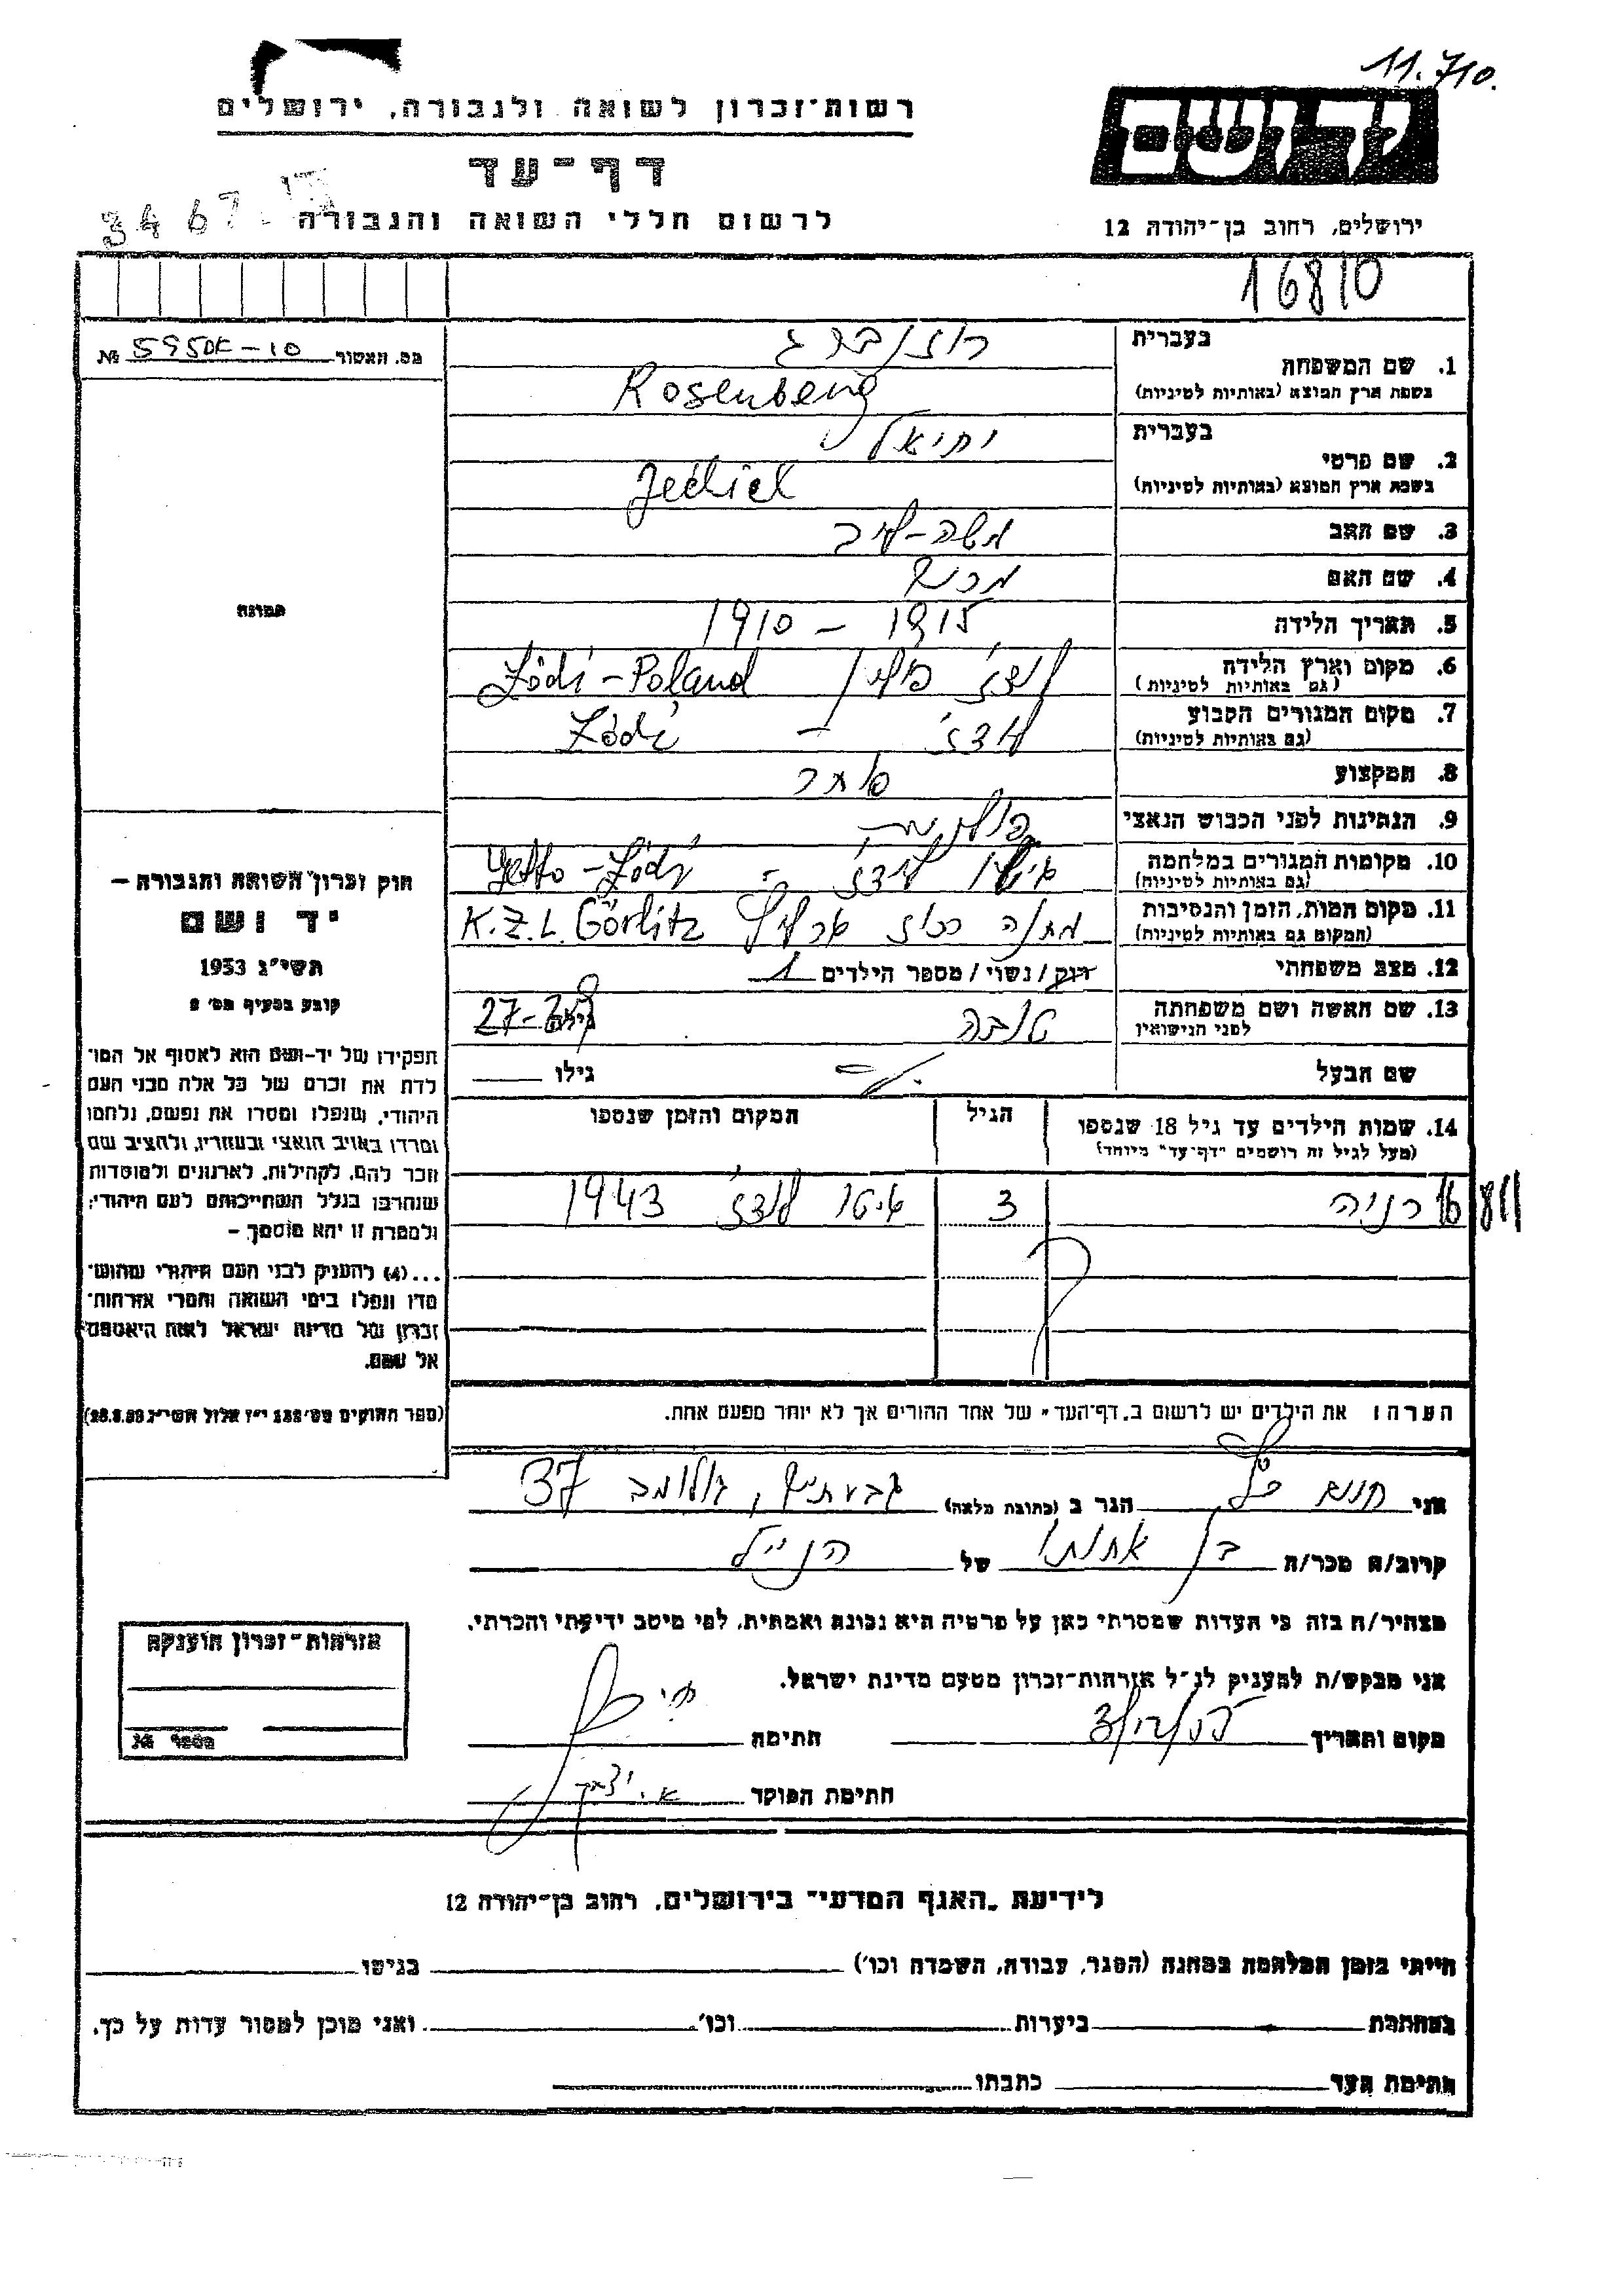 11.710.
רשות־זכרון לשואה ולגבורה, ירושלים
יד ושם
דף־עד
לרשום חללי השואה והגבורה
3467
ירושלים, רחוב בן־יהודה 12
16810
מס. האשור 595א–10 №
1. שם המשפחה בעברית רוזנברג
בשפת ארץ המוצא (באותיות לטיניות) Rosenberg
2. שם פרטי בעברית יחיאל
בשפת ארץ המוצא (באותיות לטיניות) Jechiel
3. שם האב משה-לייב
4. שם האם
5. תאריך הלידה 1910 – 1915
6. מקום וארץ הלידה לודז' פולין Łódź-Poland
(גם באותיות לטיניות)
7. מקום המגורים הקבוע לודז' – Łódź
(גם באותיות לטיניות)
8. המקצוע סוחר
9. הנתינות לפני הכבוש הנאצי פולנית
10. מקומות המגורים במלחמה גיטו לודז' – Getto-Łódź
(גם באותיות לטיניות)
11. מקום המות, הזמן והנסיבות מחנה ריכוז גרליץ K.Z.L. Görlitz
(המקום גם באותיות לטיניות)
12. מצב משפחתי רווק / נשוי / מספר הילדים 1
13. שם האשה ושם משפחתה טובה גילה 27-28
לפני הנישואין
שם הבעל גילו
14. שמות הילדים עד גיל 18 שנספו הגיל המקום והזמן שנספו
(מעל לגיל זה רושמים "דף־עד" מיוחד)
16811 רניה 3 גיטו לודז' 1943
הערה: את הילדים יש לרשום ב„דף־העד" של אחד ההורים אך לא יותר מפעם אחת.
תמונה
חוק זכרון השואה והגבורה –
יד ושם
תשי"ג 1953
קובע בסעיף מס' 2
תפקידו של יד-ושם הוא לאסוף אל המו־
לדת את זכרם של כל אלה מבני העם
היהודי, שנפלו ומסרו את נפשם, נלחמו
ומרדו באויב הנאצי ובעוזריו, ולהציב שם
וזכר להם, לקהילות, לארגונים ולמוסדות
שנחרבו בגלל השתייכותם לעם היהודי;
ולמטרת זו יהא מוסמך –
...(4) להעניק לבני העם היהודי שהוש־
מדו ונפלו בימי השואה והמרי אזרחות־
זכרון של מדינת ישראל לאות היאספם
אל עמם.
(ספר החוקים מס' 132 י"ז אלול תשי"ג 28.8.53)
אני חנוך הגר ב (כתובת מלאה) גבעתיים, גולומב 37
קרוב/ה מכר/ה בן אחותו של הנ"ל
מצהיר/ה בזה כי העדות שמסרתי כאן על פרטיה היא נכונה ואמתית, לפי מיטב ידיעתי והכרתי.
אני מבקש/ת להעניק לנ"ל אזרחות־זכרון מטעם מדינת ישראל.
מקום ותאריך חתימה
חתימת הפוקד א. יצחק
אזרחות־זכרון הוענקה
מספר №
לידיעת „האגף המדעי" בירושלים, רחוב בן־יהודה 12
הייתי בזמן המלחמה במחנה (הסגר, עבודה, השמדה וכו') בגיטו
במחתרת ביערות וכו'. ואני מוכן למסור עדות על כך.
חתימת העד כתבתו